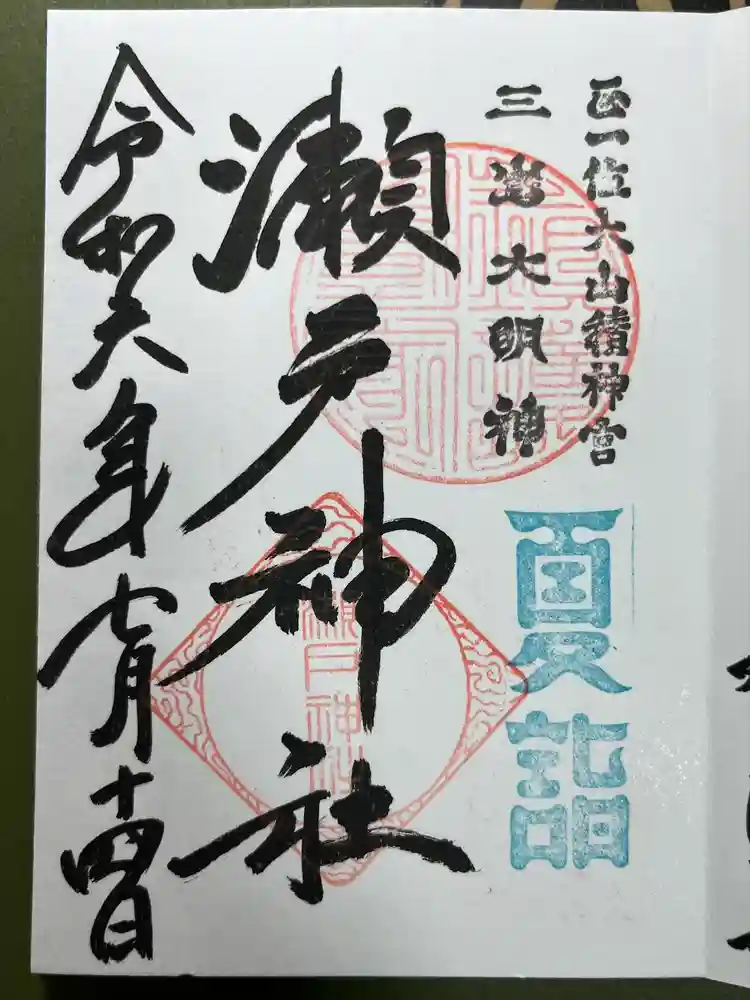 正一位大山積神宮
三島大明神
夏詣
瀬戸神社
瀬戸神社
令和六年七月十四日